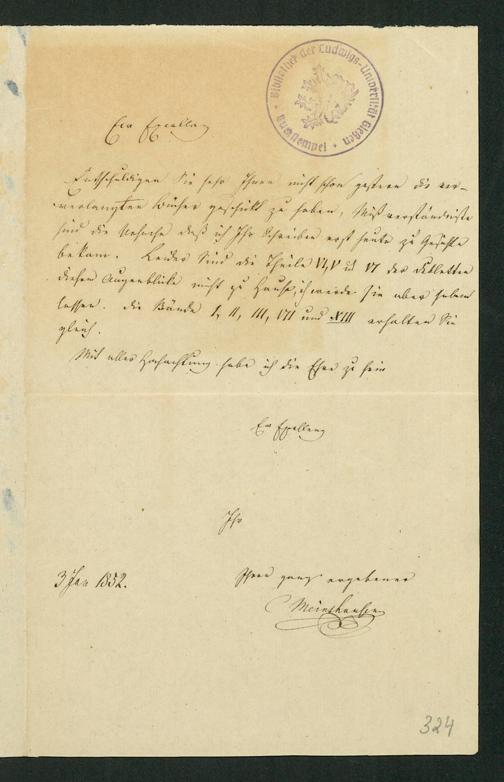 Bibliothek der Ludwigs-Universität Gießen
Buchstempel
Ew Excellenz
Entschuldigen Sie sehr Ihnen nicht schon gestern die ver-
verlangten Bücher geschikt zu haben, Mißverständnisse
sind die Ursache daß ich Ihr Schreiben erst heute zu Gesichte
bekam. Leider sind die Theile VI, V und VI der
diesen Augenblike nicht zu Hause, ich werde sie aber holen
lassen. die Bände I, II, III, VII und XIII erhalten Sie
gleich.
Mit aller Hochachtung habe ich die Ehre zu sein
Ew Excellenz
Ihr
3 Jan 1852.
Ihrer ganz ergebener
324